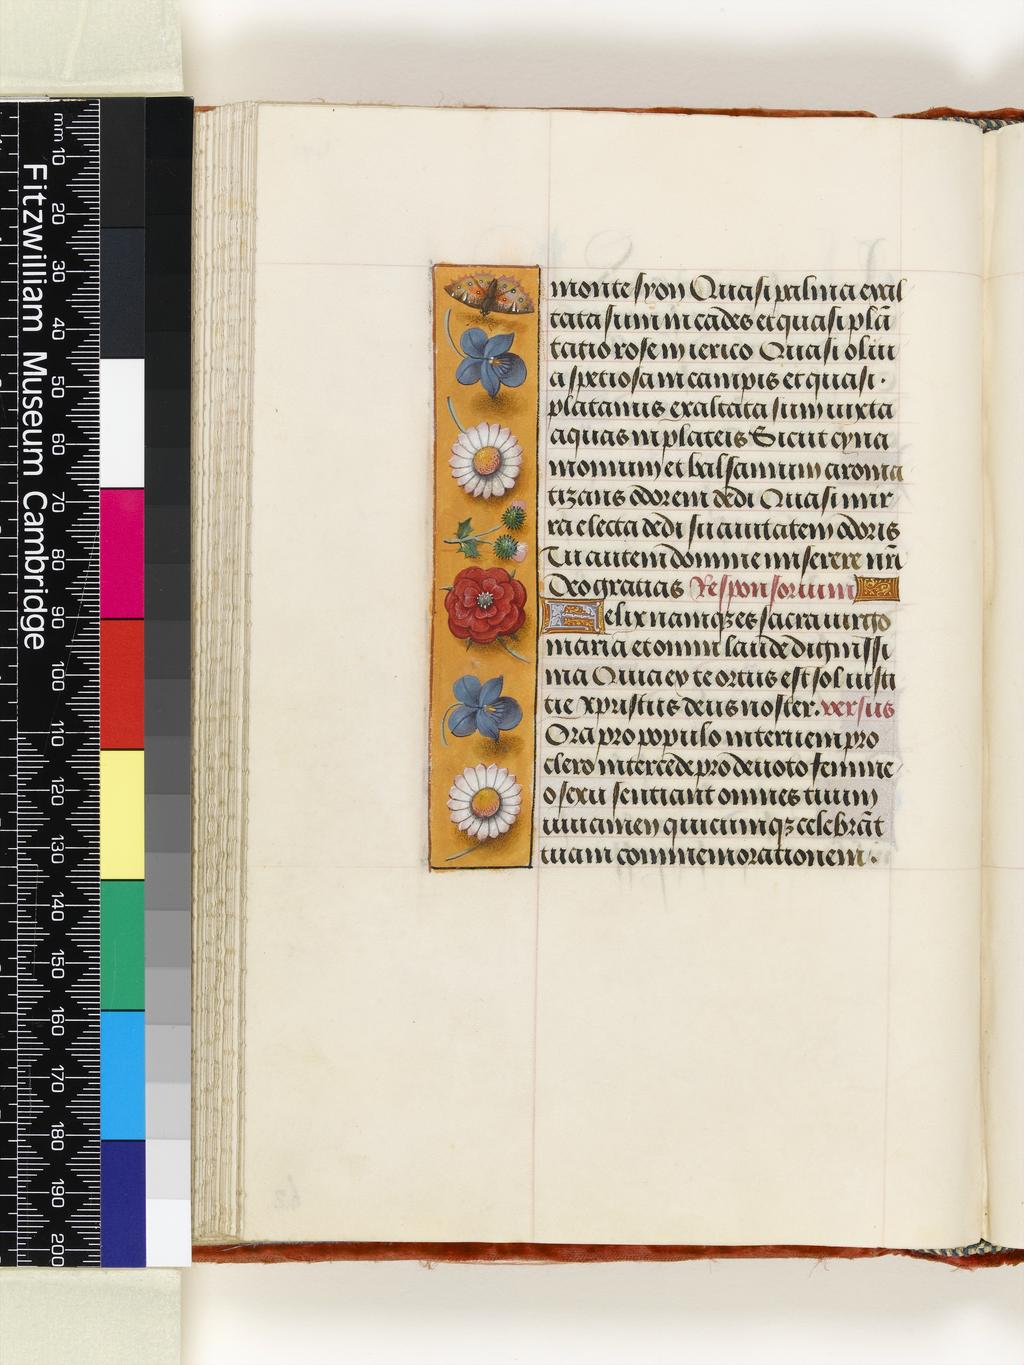 mm 10 20 30 40 50 60 70 80 90 100 110 120 130 140 150 160 170 180 190 200
Fitzwilliam Museum Cambridge
monte syon Quasi palma exal
tata sum in cades et quasi plā
tatio rose in ierico Quasi oliu
a spetiosa in campis et quasi
platanus exaltata sum iuxta
aquas in plateis Sicut cyna
momum et balsamum aroma
tizans odorem dedi Quasi mir
ra electa dedi suauitatem odoris
Tu autem domine miserere nr̄i
Deo gratias Responsorium
Felix namqꝫ es sacra uirgo
maria et omni laude dignissi
ma Quia ex te ortus est sol iusti
tie xpristus deus noster. versus
Ora pro populo interueni pro
clero intercede pro deuoto femine
o sexu sentiant omnes tuum
iuuamen quicumqꝫ celebrāt
tuam commemorationem.